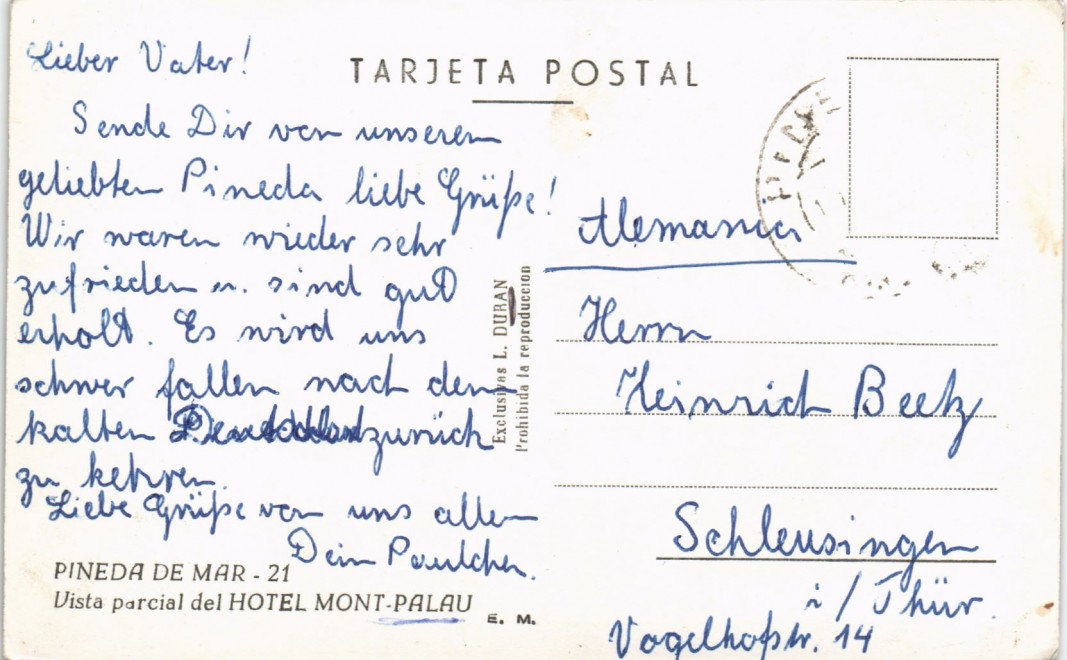 Lieber Vater!
Sende Dir von unserem
geliebten Pineda liebe Grüße!
Wir waren wieder sehr
zufrieden u. sind gut
erholt. Es wird uns
schwer fallen nach dem
kalten zurück
zu kehren.
Liebe Grüße von uns allen
Dein Paulchen.
PINEDA DE MAR - 21
Vista parcial del HOTEL MONT-PALAU
E. M.
TARJETA POSTAL
Exclusivas L. DURAN
Prohibida la reproduccion
Alemania
Herrn
Heinrich Beetz
Schleusingen
i/Thür.
Vogelhofstr. 14